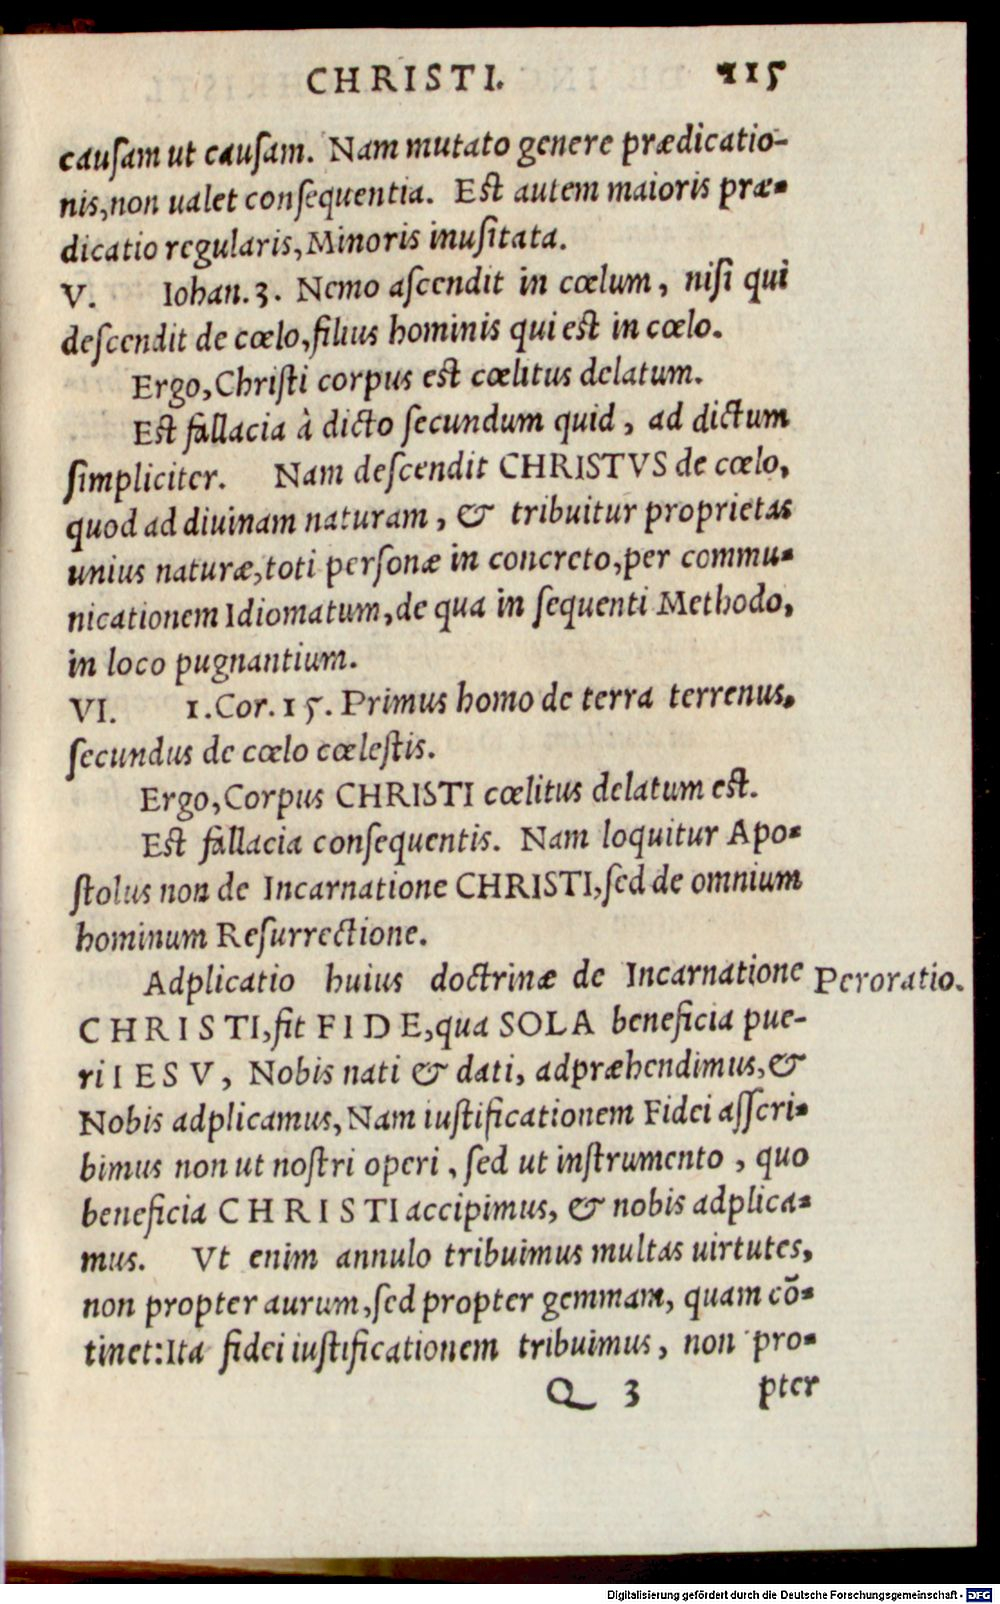 CHRISTI. 115
cauſam ut cauſam. Nam mutato genere prædicatio-
nis, non ualet conſequentia. Eſt autem maioris præ-
dicatio regularis, Minoris inuſitata.
V. Iohan. 3. Nemo aſcendit in cœlum, niſi qui
deſcendit de cœlo, filius hominis qui eſt in cœlo.
Ergo, Chriſti corpus eſt cœlitus delatum.
Eſt fallacia à dicto ſecundum quid, ad dictum
ſimpliciter. Nam deſcendit CHRISTVS de cœlo,
quod ad diuinam naturam, & tribuitur proprietas
unius naturæ, toti perſonæ in concreto, per commu-
nicationem Idiomatum, de qua in ſequenti Methodo,
in loco pugnantium.
VI. 1. Cor. 15. Primus homo de terra terrenus,
ſecundus de cœlo cœleſtis.
Ergo, Corpus CHRISTI cœlitus delatum eſt.
Eſt fallacia conſequentis. Nam loquitur Apo-
ſtolus non de Incarnatione CHRISTI, ſed de omnium
hominum Reſurrectione.
Adplicatio huius doctrinæ de Incarnatione Peroratio.
CHRISTI, fit FIDE, qua SOLA beneficia pue-
ri IESV, Nobis nati & dati, adpræhendimus, &
Nobis adplicamus, Nam iuſtificationem Fidei aſſcri-
bimus non ut noſtri operi, ſed ut inſtrumento, quo
beneficia CHRISTI accipimus, & nobis adplica-
mus. Vt enim annulo tribuimus multas uirtutes,
non propter aurum, ſed propter gemmam, quam cõ-
tinet: Ita fidei iuſtificationem tribuimus, non pro-
Q 3 pter
Digitalisierung gefördert durch die Deutsche Forschungsgemeinschaft - DFG